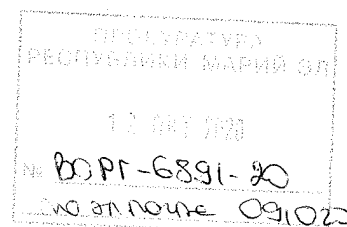 ПРОКУРАТУРА
РЕСПУБЛИКИ МАРИЙ ЭЛ
12 ОКТ 2020
№ ВОРГ-6891-20
по эл почте